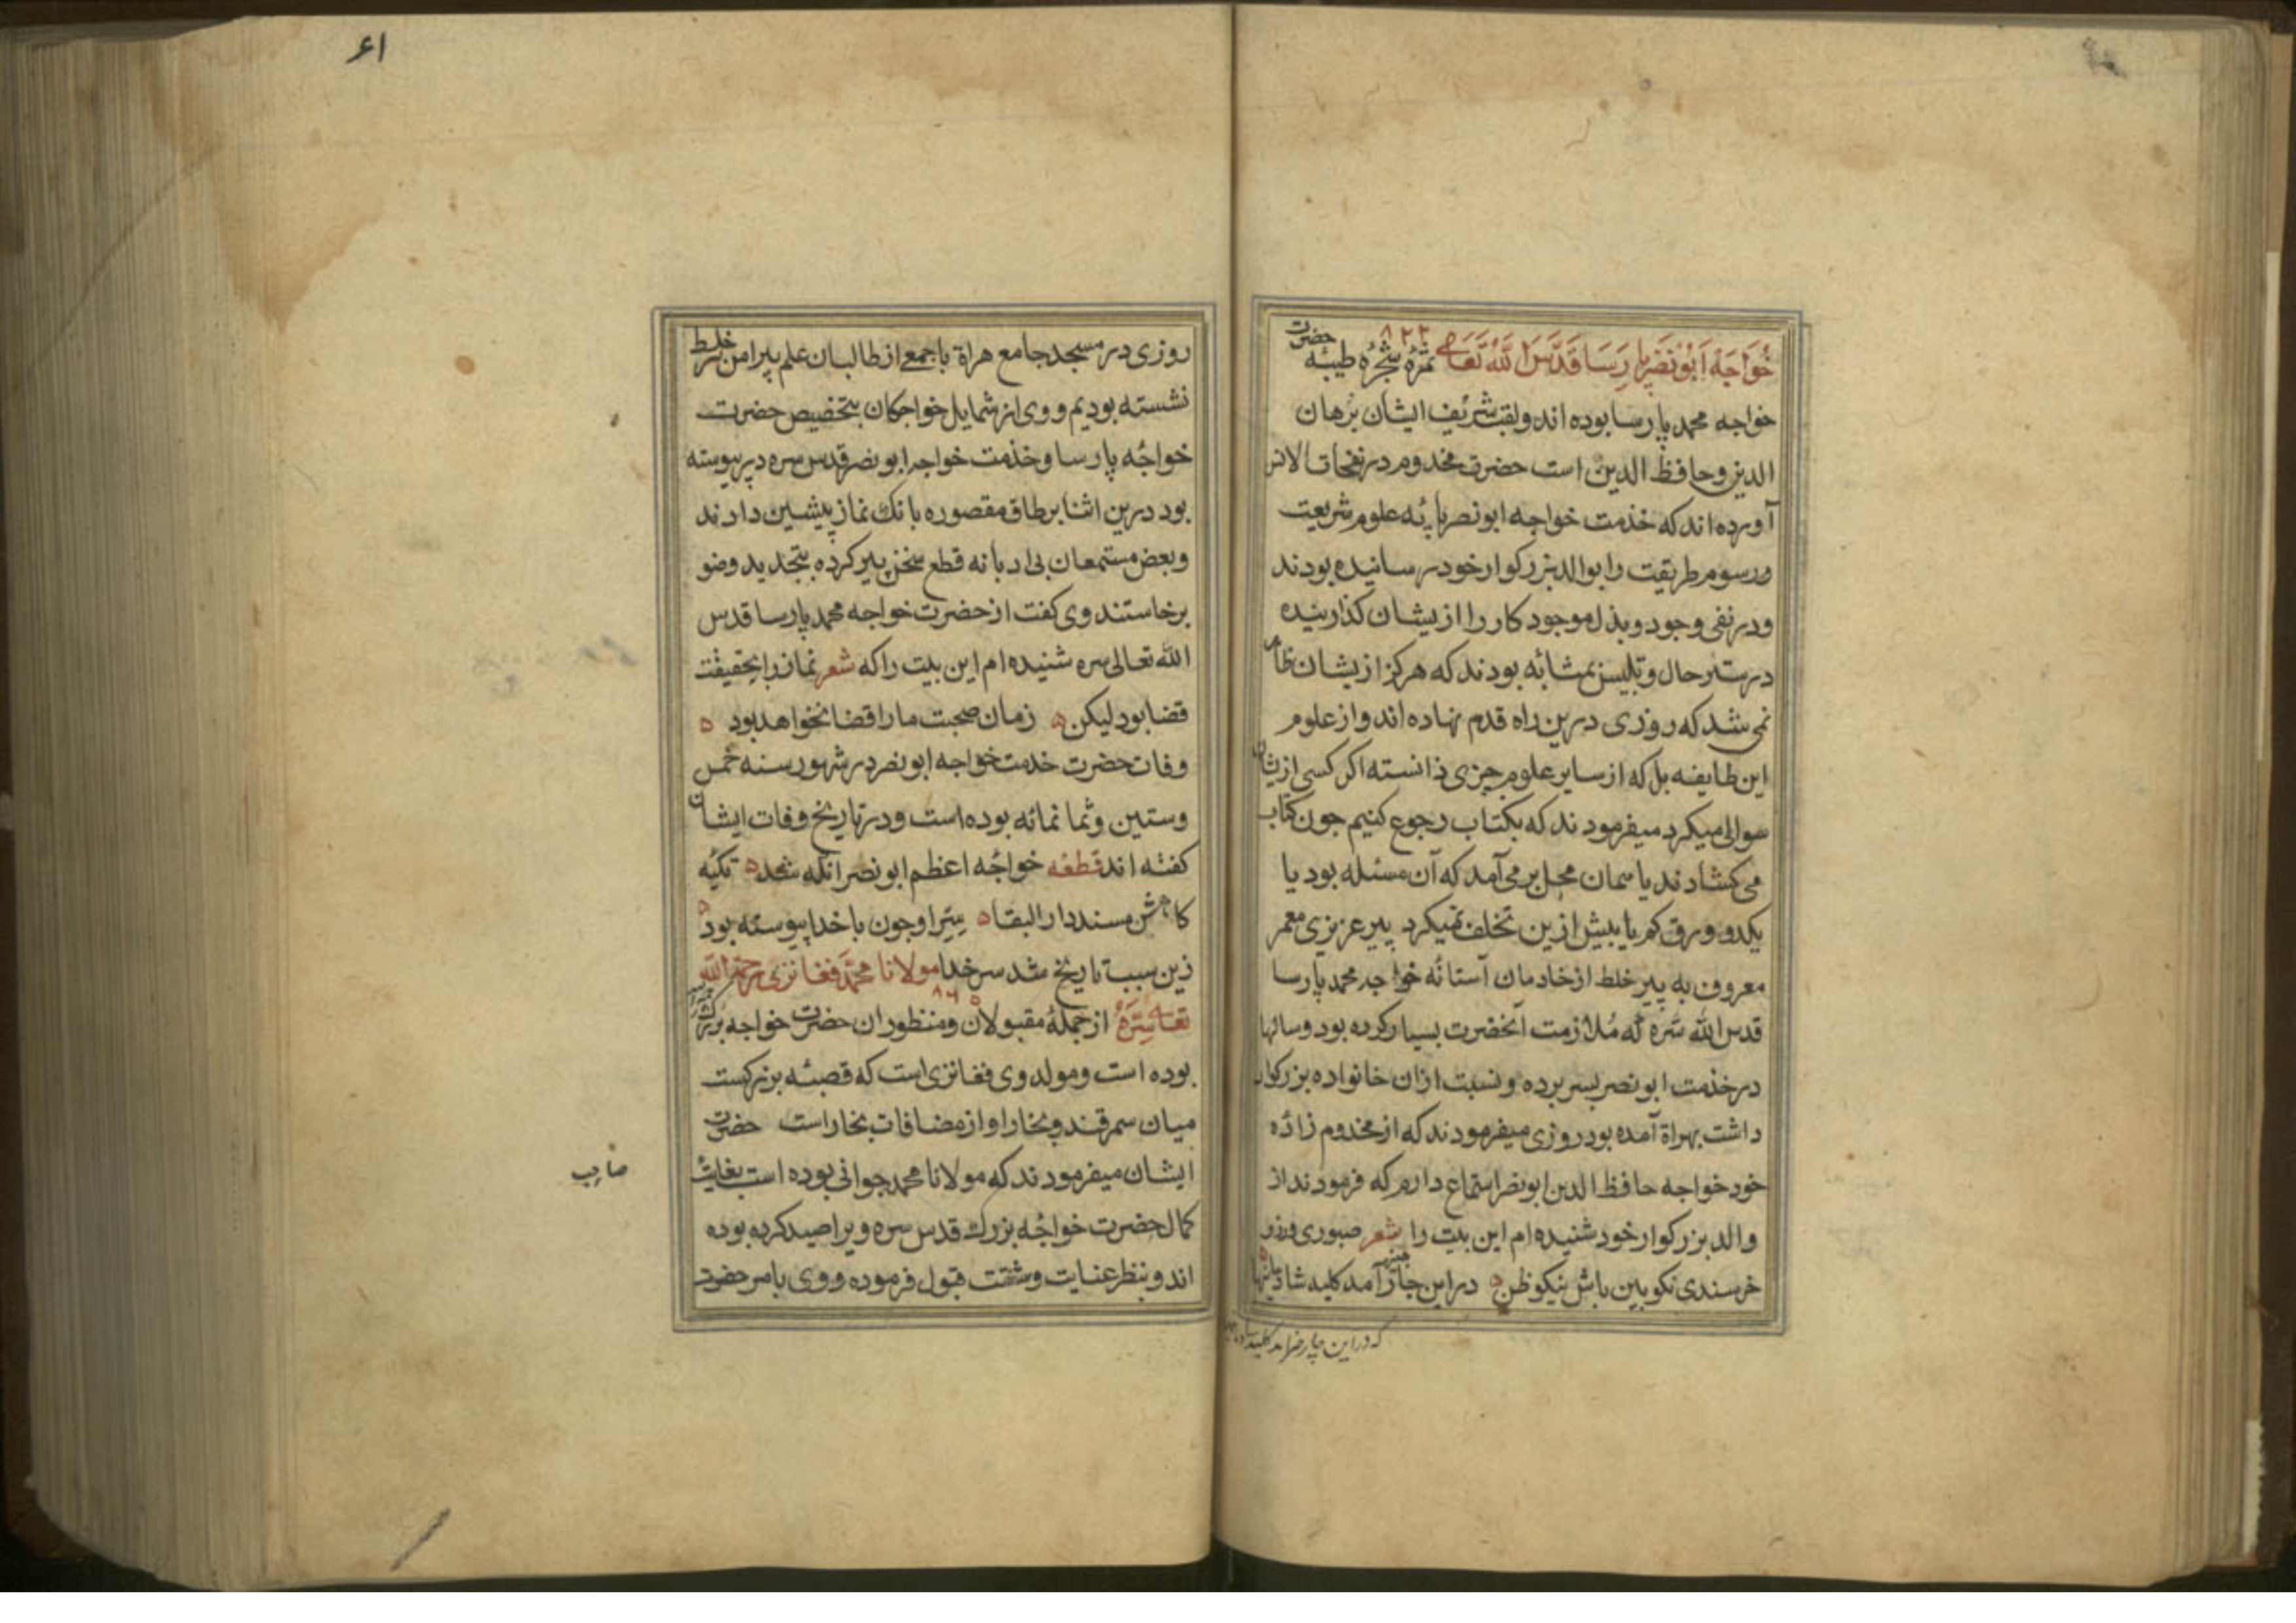 خواجه ابونصر پارسا قدس الله تعالی ثمرهٔ شجرهٔ طیبه حضرت
۸۲۲
خواجه محمد پارسا بوده اند ولقب شریف ایشان برهان
الدین وحافظ الدین است حضرت مخدوم در نفحات الانس
آورده اند که خذمت خواجه ابونصر پایه علوم شریعت
ورسوم طریقت را بوالد بزرکوار خود رسانیده بودند
ودر نفی وجود وبذل موجود کار را از یشان کذرانیده
در ستر حال وتلبیس بمثابه بودند که هرکز از یشان ظاهر
نمی شد که روزی درین راه قدم نهاده اند واز علوم
این طایفه بل که از سایر علوم چیزی دانسته اکر کسی ازیشان
سوالی میکرد میفرمودند که بکتاب رجوع کنیم جون کتاب
می کشادند یا همان محل بر می آمد که آن مسئله بود یا
یکدو ورق کم یا بیش ازین تخلف نمیکرد پیر عزیزی معمر
معروف به پیر خلط از خادمان آستانهٔ خواجه محمد پارسا
قدس الله سره که ملازمت آنحضرت بسیار کرده بود وسالها
در خذمت ابونصر بسر برده ونسبت ازان خانواده بزرکوار
داشت بهراة آمده بود روزی میفرمودند که از مخدوم زاده
خود خواجه حافظ الدین ابونصر استماع دارم که فرمودند از
والد بزرکوار خود شنیده ام این بیت را شعر صبوری ورزو
خرسندی نکو بین باش نیکو ظن ۵ در این جا آمد کلید شادیانها
که در این چار ضرامد کلید
۶۱
روزی در مسجد جامع هراة با جمعی از طالبان علم پیرامن پیر خلط
نشسته بودیم ووی از شمایل خواجکان بتخصیص حضرت
خواجهٔ پارسا وخذمت خواجه ابونصر قدس سره در پیوسته
بود درین اثنا بر طاق مقصوره بانک نماز پیشین دادند
وبعض مستمعان بی ادبانه قطع سخن پیر کرده بتجدید وضو
برخاستند وی کفت از حضرت خواجه محمد پارسا قدس
الله تعالی سره شنیده ام این بیت را که شعر نماز را بحقیقت
قضا بود لیکن ۵ زمان صحبت ما را قضا نخواهد بود ۵
وفات حضرت خدمت خواجه ابونصر در شهور سنه خمس
وستین وثمانمائه بوده است ودر تاریخ وفات ایشان
کفته اند قطعه خواجهٔ اعظم ابونصر انکه شد ۵ تکیه
کاهش مسند دار البقا ۵ سر او چون با خدا پیوسته بود ۵
زین سبب تاریخ شد سر خدا مولانا محمد فغانزی رحمه الله
۸۶۵
تعالی سره از جملهٔ مقبولان ومنظوران حضرت خواجه بزرک
بوده است ومولد وی فغانزی است که قصبهٔ بزرکست
میان سمرقند وبخارا واز مضافات بخاراست حضرت
ایشان میفرمودند که مولانا محمد جوانی بوده است بغایت
صاحب
کمال حضرت خواجهٔ بزرک قدس سره ویرا صید کرده بوده
اند وبنظر عنایت وشفقت قبول فرموده ووی بامر حضرت